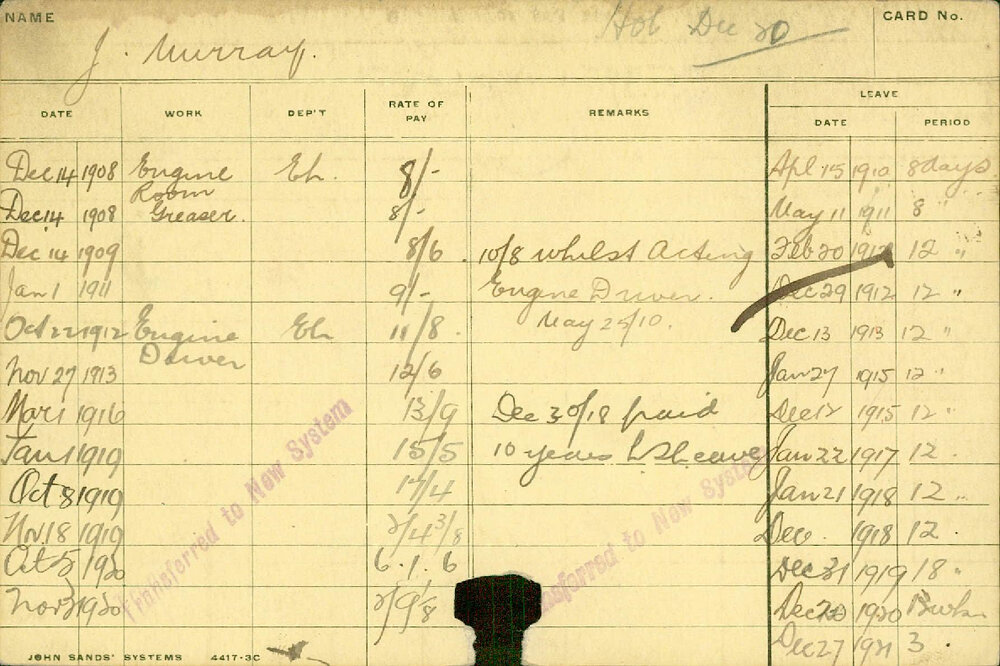 NAME
J. Murray.
Hol Dec 20
CARD No.
DATE WORK DEP'T RATE OF PAY REMARKS LEAVE
DATE PERIOD
Dec 14 1908 Engine Eh. 8/- Apl 15 1910 8 days.
Room
Dec 14 1908 Greaser. 8/- May 11 1911 8 "
Dec 14 1909 8/6 10/8 whilst Acting Feb 20 1912 12 "
Jan 1 1911 9/- Engine Driver. Dec 29 1912 12 "
May 25/10.
Oct 22 1912 Engine Eh 11/8. Dec 13 1913 12 "
Driver
Nov 27 1913 12/6 Jan 27 1915 12 "
Mar 1 1916 13/9 Dec 30/18 paid Dec 12 1915 12 "
Jan 1 1919 15/5 10 years LS leave Jan 22 1917 12.
Oct 8 1919 17/4 Jan 21 1918 12 "
Nov. 18 1919 2/4 3/8 Dec. 1918 12.
Oct 5 1920 6.1.6 Dec 31 1919 18 "
Nov 3 1920 Dec 20 1920
Dec 27 1921 3.
Transferred to New System
Transferred to New System
JOHN SANDS' SYSTEMS 4417-3C